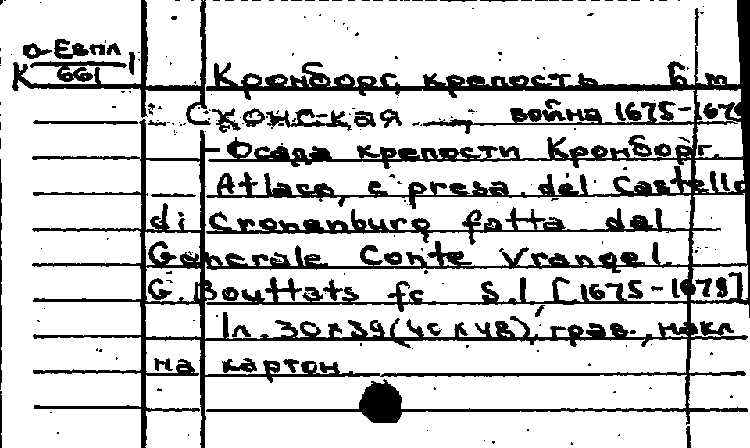 О-Евпл
К 661
1
Кронборг, крепость б.m
Сконская война 1675-1679
- Осада крепости Кронборг.
Atlaco, e presa del Castello
di Cronenburg fatta dal
Generale Conte Vrangel.
G. Bouttats fc S.l, [1675-1678]
1л. 30х39(40х48), грав., накл
на картон.